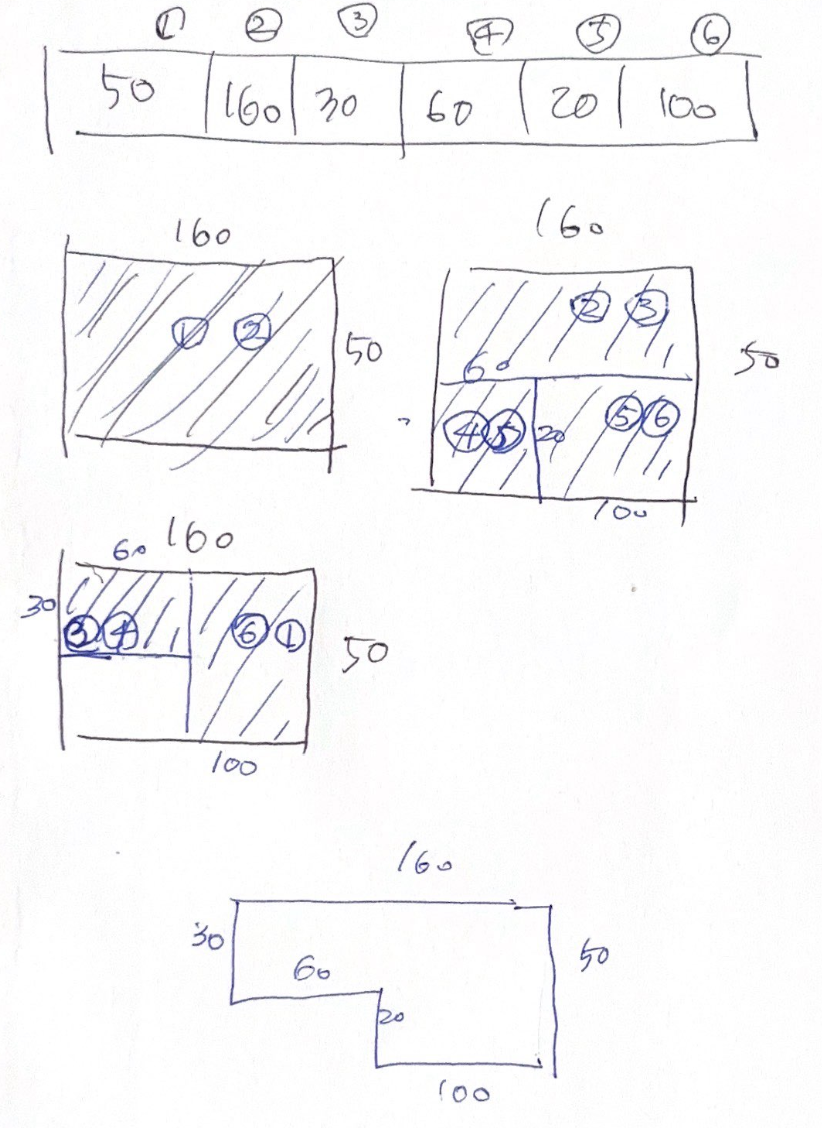 ① ② ③ ④ ⑤ ⑥
50 160 30 60 20 100
160
① ②
50
160
② ③
50
60
④ ⑤ 20 ⑤ ⑥
100
60 160
30
③ ④ ⑥ ①
50
100
160
30
50
60
20
100